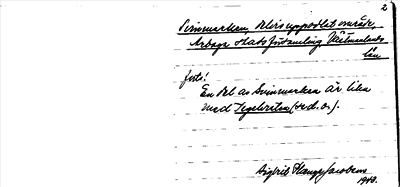 2
Svinmarken, delvis uppodlat område,
Arboga Stadsförsamling, Västmanlands
län
forts!
En del av Svinmarken är lika
med Tegelviten (se d.o.).
Sigfrid Hauge Jacobsen
1948.